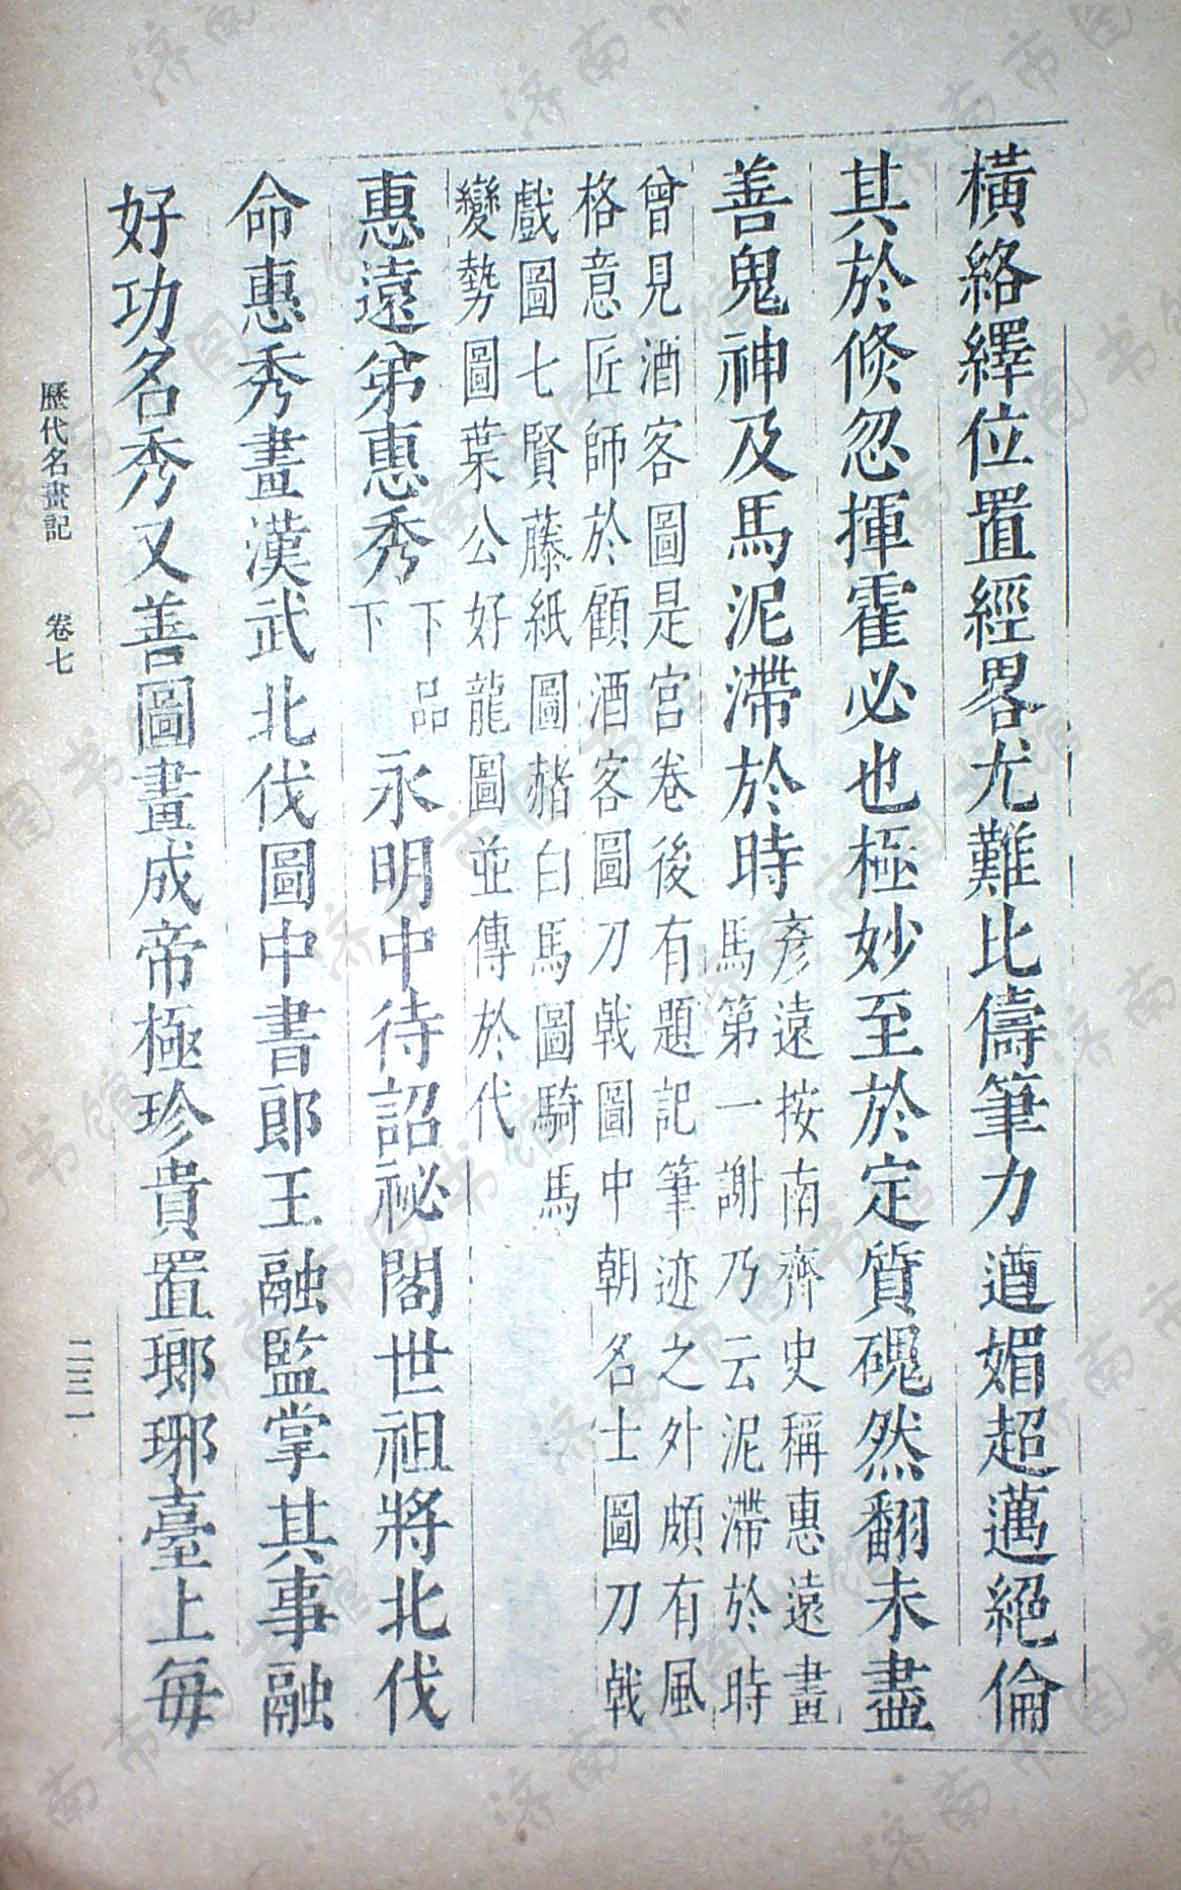 橫絡繹位置經畧尤難比儔筆力遒媚超邁絕倫
其於倏忽揮霍必也極妙至於定質磈然翻未盡
善鬼神及馬泥滯於時
彥遠按南齊史稱惠遠畫
馬第一謝乃云泥滯於時
曾見酒客圖是宮卷後有題記筆迹之外頗有風
格意匠師於顧酒客圖刀戟圖中朝名士圖刀戟
戲圖七賢藤紙圖赭白馬圖騎馬
變勢圖葉公好龍圖並傳於代
惠遠弟惠秀
下品
下
永明中待詔祕閣世祖將北伐
命惠秀畫漢武北伐圖中書郎王融監掌其事融
好功名秀又善圖畫成帝極珍貴置瑯琊臺上每
歷代名畫記 卷七
二三一
济南市图书馆